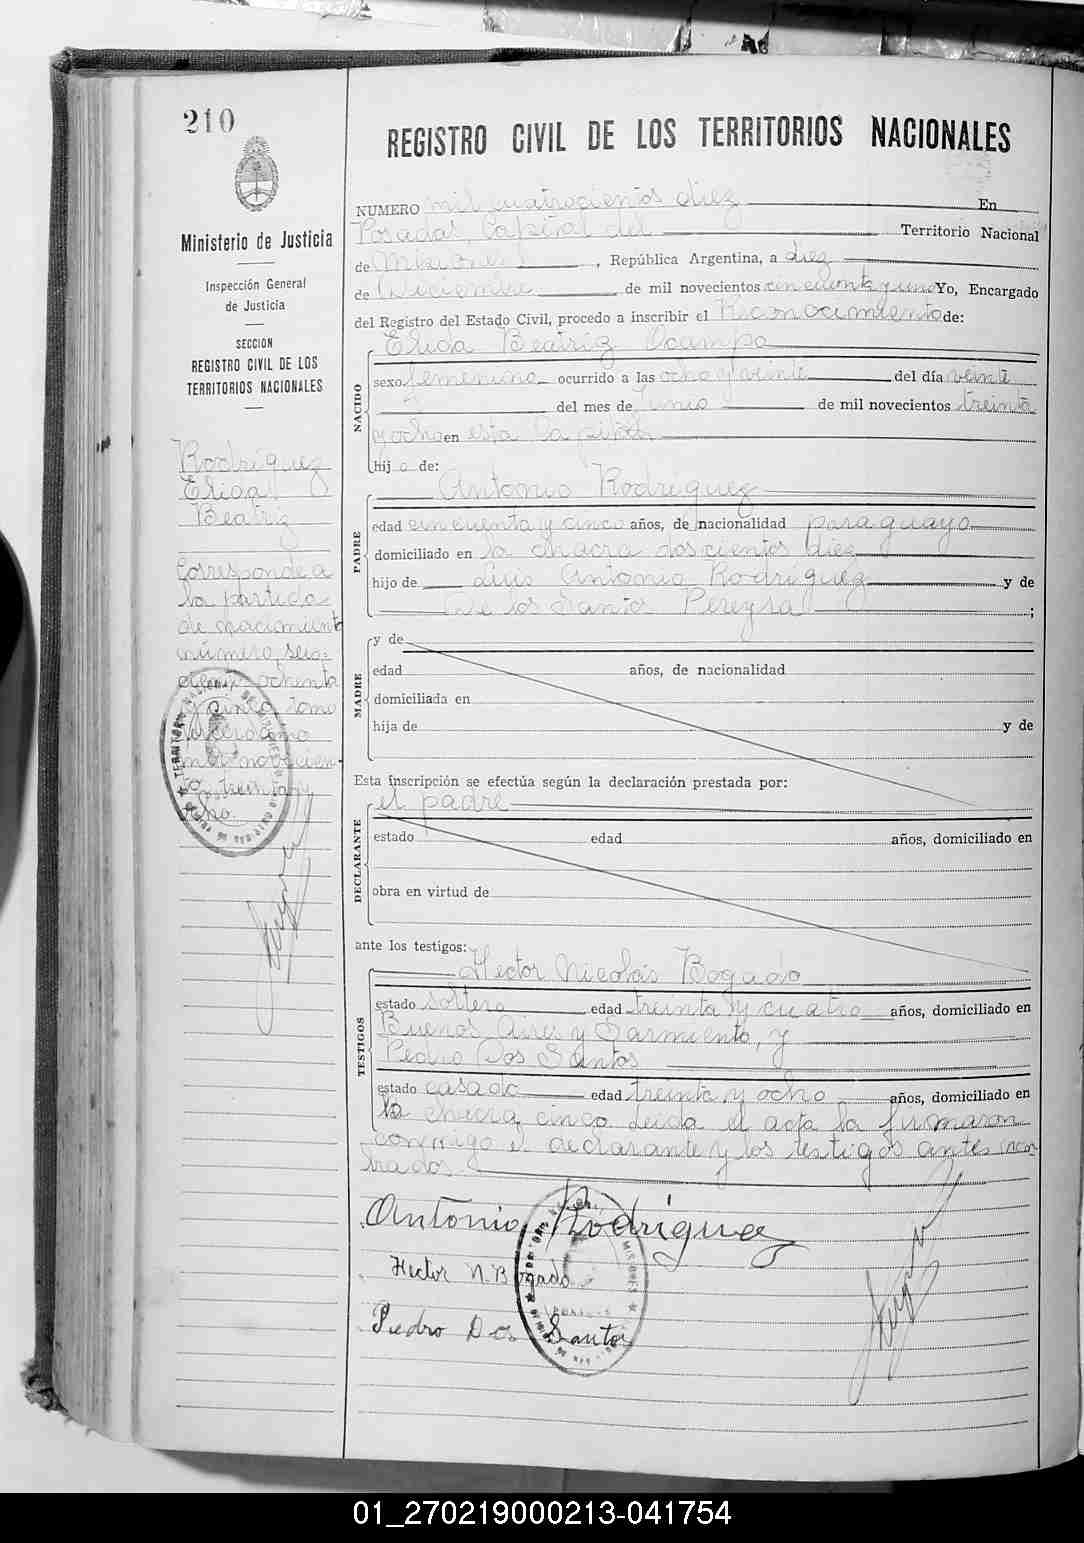 210
REGISTRO CIVIL DE LOS TERRITORIOS NACIONALES
Ministerio de Justicia
Inspección General
de Justicia
SECCIÓN
REGISTRO CIVIL DE LOS
TERRITORIOS NACIONALES
Rodríguez
Elida
Beatriz
Corresponde a
la partida
de nacimiento
número seis-
cientos ochenta
y cinco tomo
tercero año
mil novecien-
tos treinta y
ocho.
NUMERO mil cuatrocientos diez En
Posadas, Capital del Territorio Nacional
de Misiones, República Argentina, a diez
de Diciembre de mil novecientos cincuenta y uno Yo, Encargado
del Registro del Estado Civil, procedo a inscribir el Reconocimiento de:
NACIDO
Elida Beatriz Ocampo
sexo femenino ocurrido a las ocho y veinte del día veinte
del mes de Junio de mil novecientos treinta
y ocho en esta Capital
hij a de:
PADRE
Antonio Rodríguez
edad cincuenta y cinco años, de nacionalidad paraguayo
domiciliado en la chacra doscientos diez
hijo de Luis Antonio Rodríguez y de
De los Santos Pereyra;
MADRE
y de
edad años, de nacionalidad
domiciliada en
hija de y de
Esta inscripción se efectúa según la declaración prestada por:
DECLARANTE
el padre
estado edad años, domiciliado en
obra en virtud de
ante los testigos:
TESTIGOS
Hector Nicolás Bogado
estado soltero edad treinta y cuatro años, domiciliado en
Buenos Aires y Sarmiento, y
Pedro Dos Santos
estado casado edad treinta y ocho años, domiciliado en
la chacra cinco Leida el acta la firmaron
conmigo el declarante y los testigos antes nom
brados
Antonio Rodríguez
Hector N. Bogado
Pedro Dos Santos
01_270219000213-041754